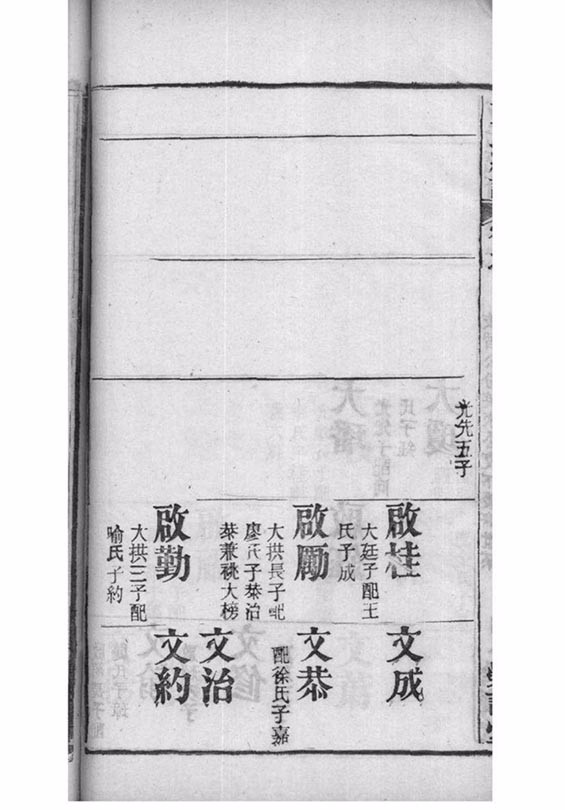 光先五子
啟桂
大廷子配王
氏子成
啟勵
大拱長子配
廖氏子恭治
恭兼祧大榜
啟勤
大拱三子配
喻氏子約
文成
文恭
配徐氏子嘉
文治
文約